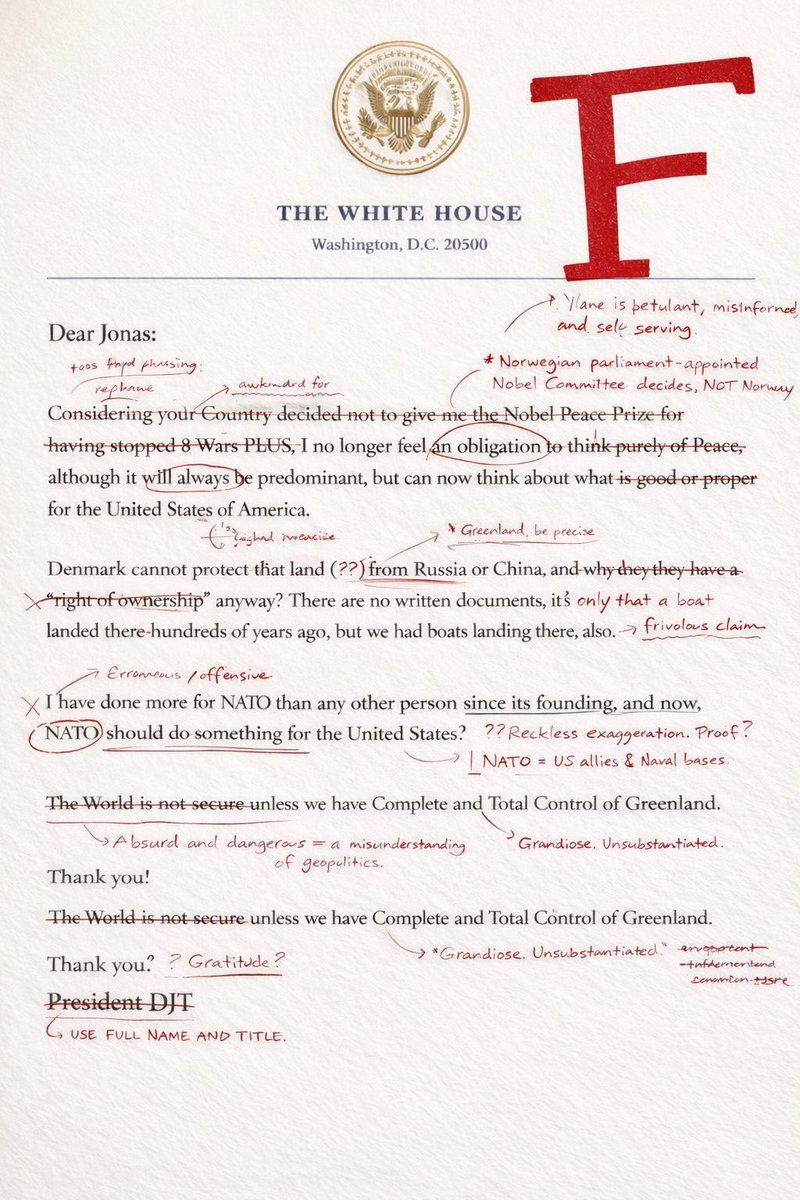 F
THE WHITE HOUSE
Washington, D.C. 20500
is petulant, misinformed,
and self serving.
Dear Jonas:
phrasing:
rephrase
awkward for
* Norwegian parliament-appointed
Nobel Committee decides, NOT Norway
Considering your Country decided not to give me the Nobel Peace Prize for
having stopped 8 Wars PLUS, I no longer feel an obligation to think purely of Peace,
although it will always be predominant, but can now think about what is good or proper
for the United States of America.
* Greenland, be precise
Denmark cannot protect that land (??) from Russia or China, and why they they have a
"right of ownership" anyway? There are no written documents, it's only that a boat
landed there hundreds of years ago, but we had boats landing there, also. frivolous claim
Erroneous / offensive.
I have done more for NATO than any other person since its founding, and now,
NATO should do something for the United States? ?? Reckless exaggeration. Proof?
NATO = US allies & Naval bases.
The World is not secure unless we have Complete and Total Control of Greenland.
Absurd and dangerous = a misunderstanding
of geopolitics.
Grandiose. Unsubstantiated.
Thank you!
The World is not secure unless we have Complete and Total Control of Greenland.
"Grandiose. Unsubstantiated."
Thank you? ? Gratitude?
President DJT
USE FULL NAME AND TITLE.